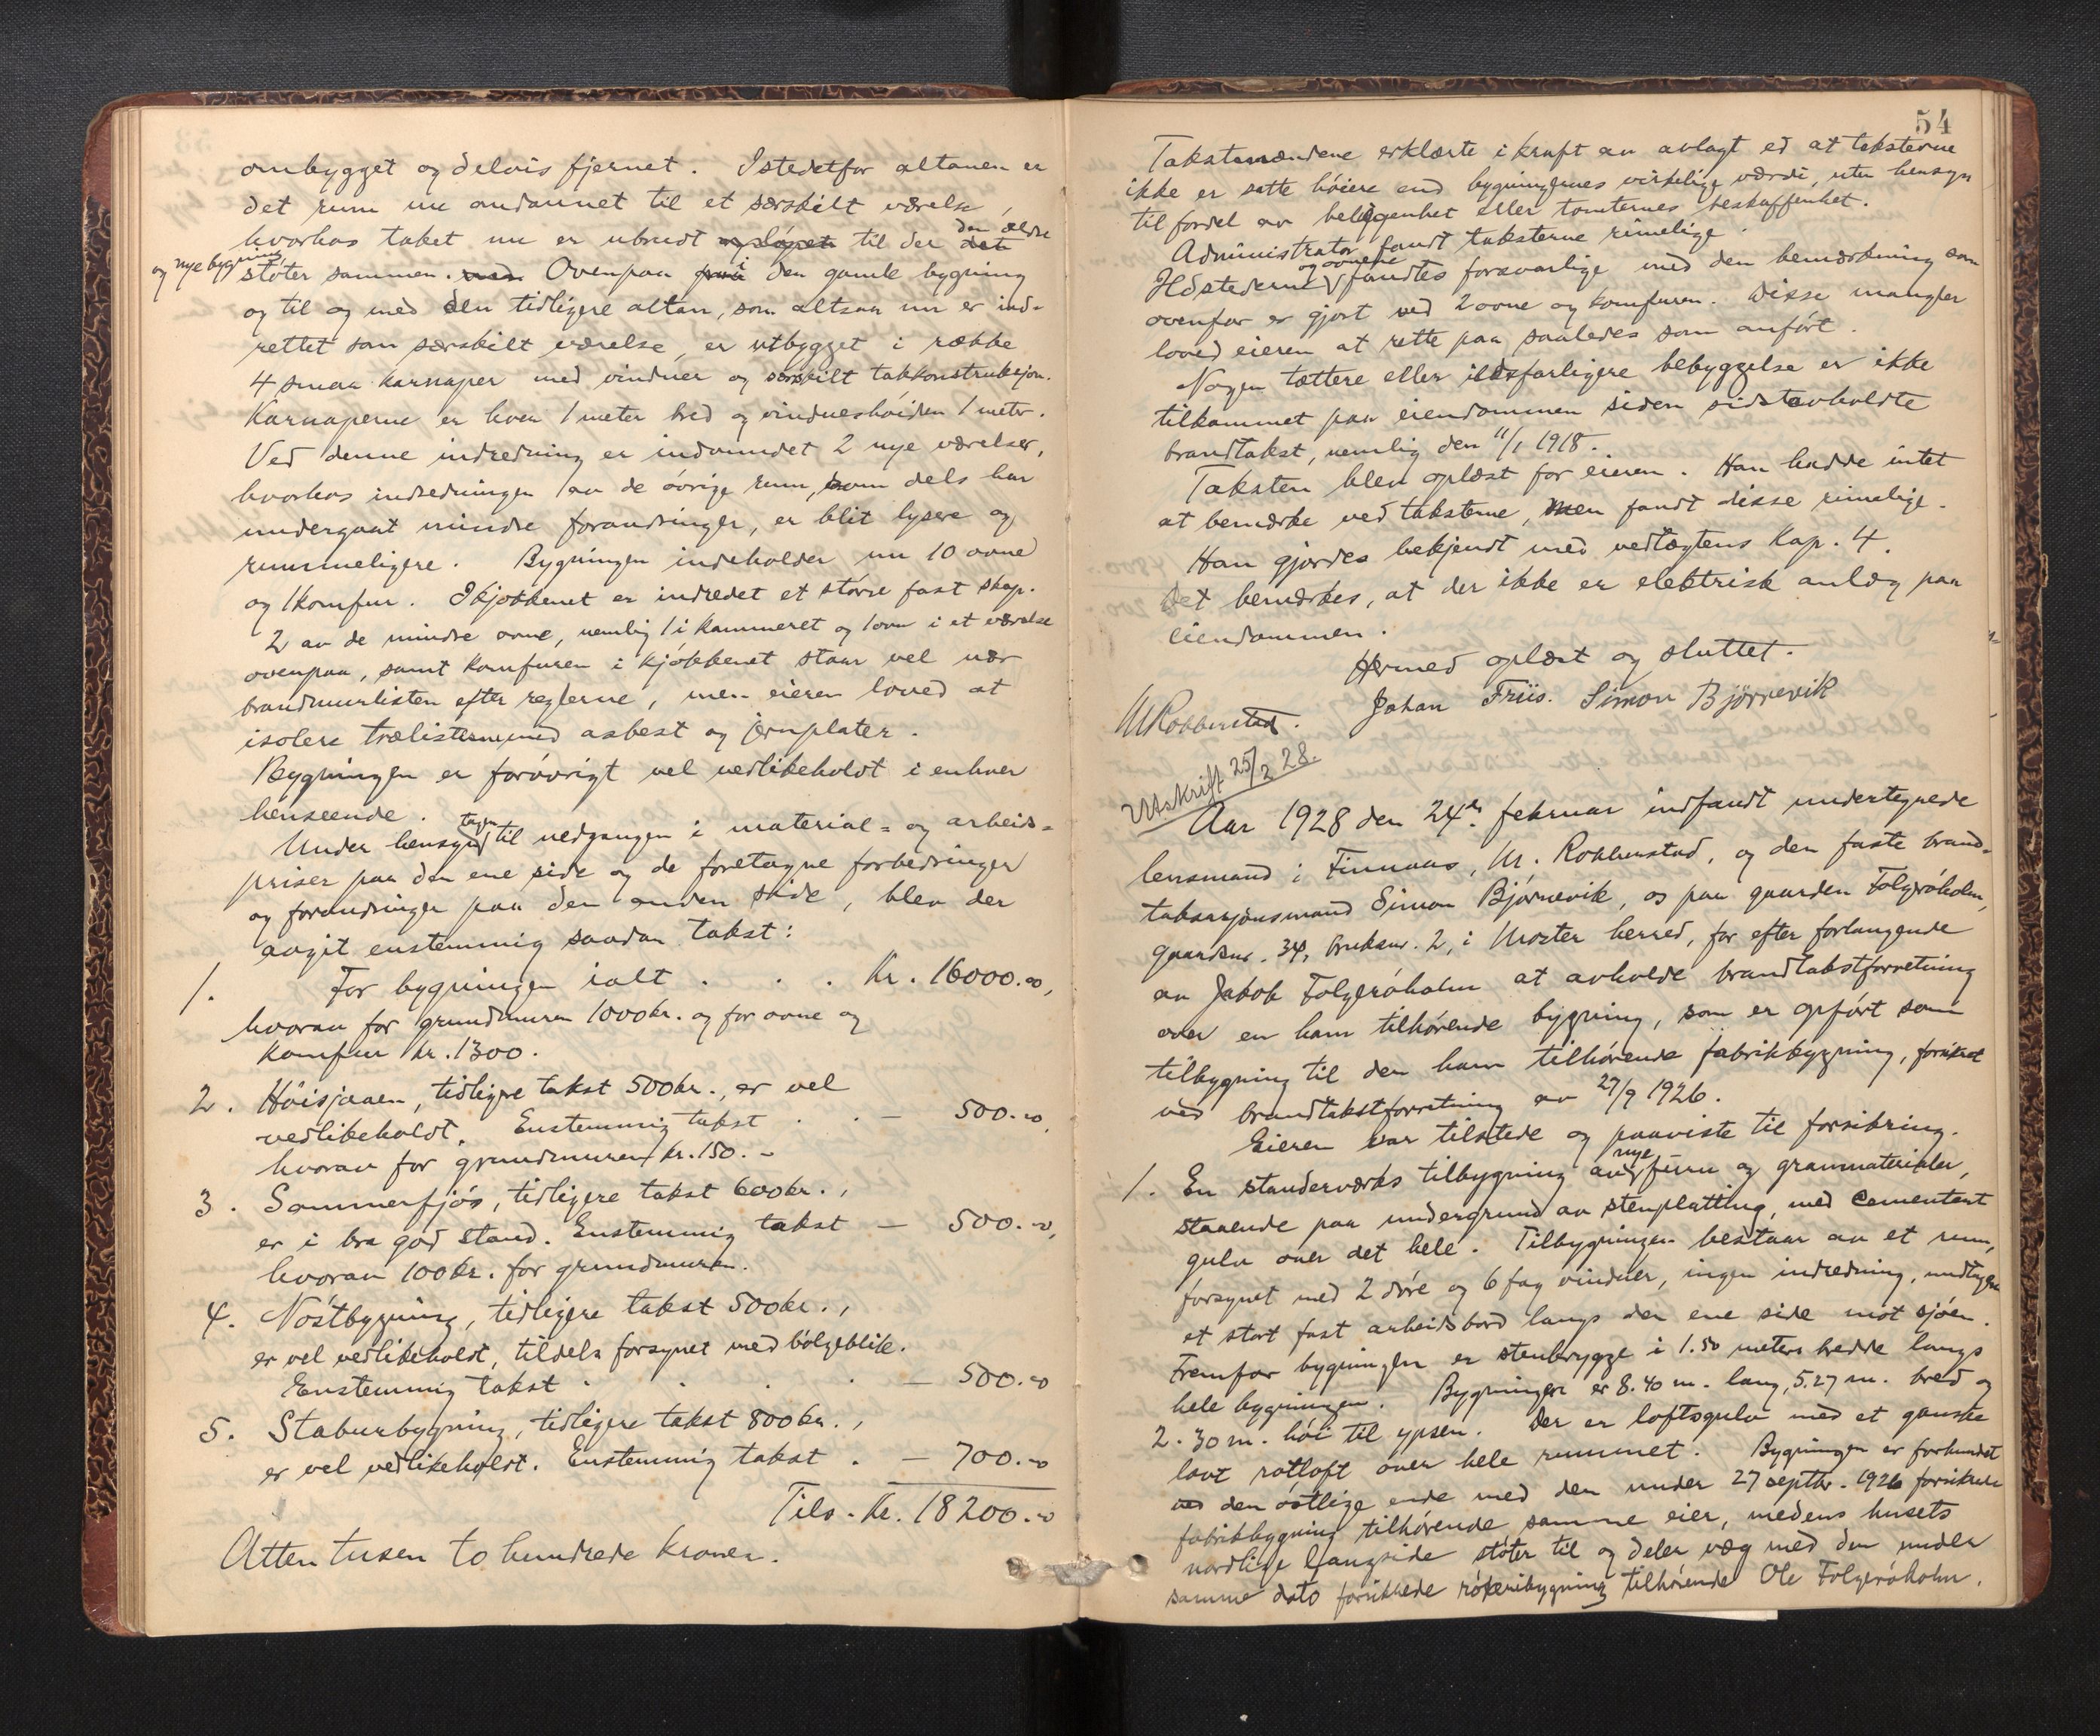 ombygget og delvis fjernet. Istedetfor altanen er
det rum nu omdannet til et særskilt værelse,
hvorhos taket nu er utvidt og sløpet til der det den ældre
og nye bygning støter sammen. med Ovenpaa paa i den gamle bygning
og til og med den tidligere altan, som altsaa nu er ind-
rettet som særskilt værelse, er utbygget i række
4 smaa karnaper med vinduer og særskilt takkonstruksjon.
Karnaperne er hver 1 meter bred og vindueshøiden 1 meter.
Ved denne indredning er indvundet 2 nye værelser,
hvorhos indredningen av de øvrige rum, som dels har
undergaat mindre forandringer, er blit lysere og
rummeligere. Bygningen indeholder nu 10 ovne
og 1 komfur. I kjøkkenet er indredet et større fast skap.
2 av de mindre ovne, nemlig 1 i kammeret og 1 ovn i et værelse
ovenpaa, samt komfuren i kjøkkenet staar vel nær
brandmurlisten efter reglerne, men eieren loved at
isolere trælisterne med asbest og jernplater.
Bygningen er forøvrigt vel vedlikeholdt i enhver
henseende.
Under hensyn tagen til nedgangen i material- og arbeids-
priser paa den ene side og de foretagne forbedringer
og forandringer paa den anden side, blev der
avgit enstemmig saadan takst:
1. For bygningen ialt . . . Kr. 16000.00,
hvorav for grundmuren 1000 kr. og for ovne og
komfur kr. 1300.
2. Høisjaaen, tidligere takst 500 kr., er vel
vedlikeholdt. Enstemmig takst . . — 500.00,
hvorav for grundmuren kr. 150.-
3. Sommerfjøs, tidligere takst 600 kr.,
er i bra god stand. Enstemmig takst — 500.00,
hvorav 100 kr. for grundmuren.
4. Nøstbygning, tidligere takst 500 kr.,
er vel vedlikeholdt, tildels forsynet med bølgeblik.
Enstemmig takst . . . . — 500.00
5. Staburbygning, tidligere takst 800 kr.,
er vel vedlikeholdt. Enstemmig takst . — 700.00
Tils. Kr. 18200.00
Atten tusen to hundrede kroner.
54
Takstmændene erklærte i kraft av avlagt ed at taksterne
ikke er satte høiere end bygningernes virkelige værdi, uten hensyn
til fordel av beliggenhet eller tomternes beskaffenhet.
Administrator fandt taksterne rimelige.
Ildstederne og ovnene fandtes forsvarlige med den bemerkning som
ovenfor er gjort ved 2 ovne og komfuren. Disse mangler
loved eieren at rette paa saaledes som anført.
Nogen tættere eller ildsfarligere bebyggelse er ikke
tilkommet paa eiendommen siden sidst avholdte
brandtakst, nemlig den 11/1 1918.
Taksten blev oplæst for eieren. Han hadde intet
at bemærke ved taksterne, men fandt disse rimelige.
Han gjordes bekjendt med vedtægtens Kap. 4.
Det bemærkes, at der ikke er elektrisk anlæg paa
eiendommen.
Hermed oplæst og sluttet.
M Robberstad. Johan Friis. Simon Bjørnevik
Utskrift 25/2 28.
Aar 1928 den 24de februar indfandt undertegnede
lensmand i Finnaas, M. Robberstad, og den faste brand-
taksasjonsmand Simon Bjørnevik, os paa gaarden Folgerøholm,
gaardsnr. 34, bruksnr. 2, i Moster herred, for efter forlangende
av Jakob Folgerøholm at avholde brandtakstforretning
over en ham tilhørende bygning, som er opført som
tilbygning til den ham tilhørende fabrikbygning, forsikret
ved brandtakstforretning av 27/9 1926.
Eieren var tilstede og paaviste til forsikring.
1. En standerværks tilbygning av nye furu og granmaterialer,
staaende paa undergrund av stenplatting, med cementert
gulv over det hele. Tilbygningen bestaar av et rum,
forsynet med 2 døre og 6 fag vinduer, ingen indredning, undtagen
et stort fast arbeidsbord langs den ene side mot sjøen.
Fremfor bygningen er stenbrygge i 1.50 meters bredde langs
hele bygningen. Bygningen er 8.40 m. lang, 5.27 m. bred og
2.30 m. høi til ypsen. Der er loftsgulv med et ganske
lavt rotloft over hele rummet. Bygningen er forbundet
ved den østlige ende med den under 27 septbr. 1926 forsikrede
fabrikbygning tilhørende samme eier, medens husets
nordlige langside støter til og deler væg med den under
samme dato forsikrede røkeribygning tilhørende Ole Folgerøholm.